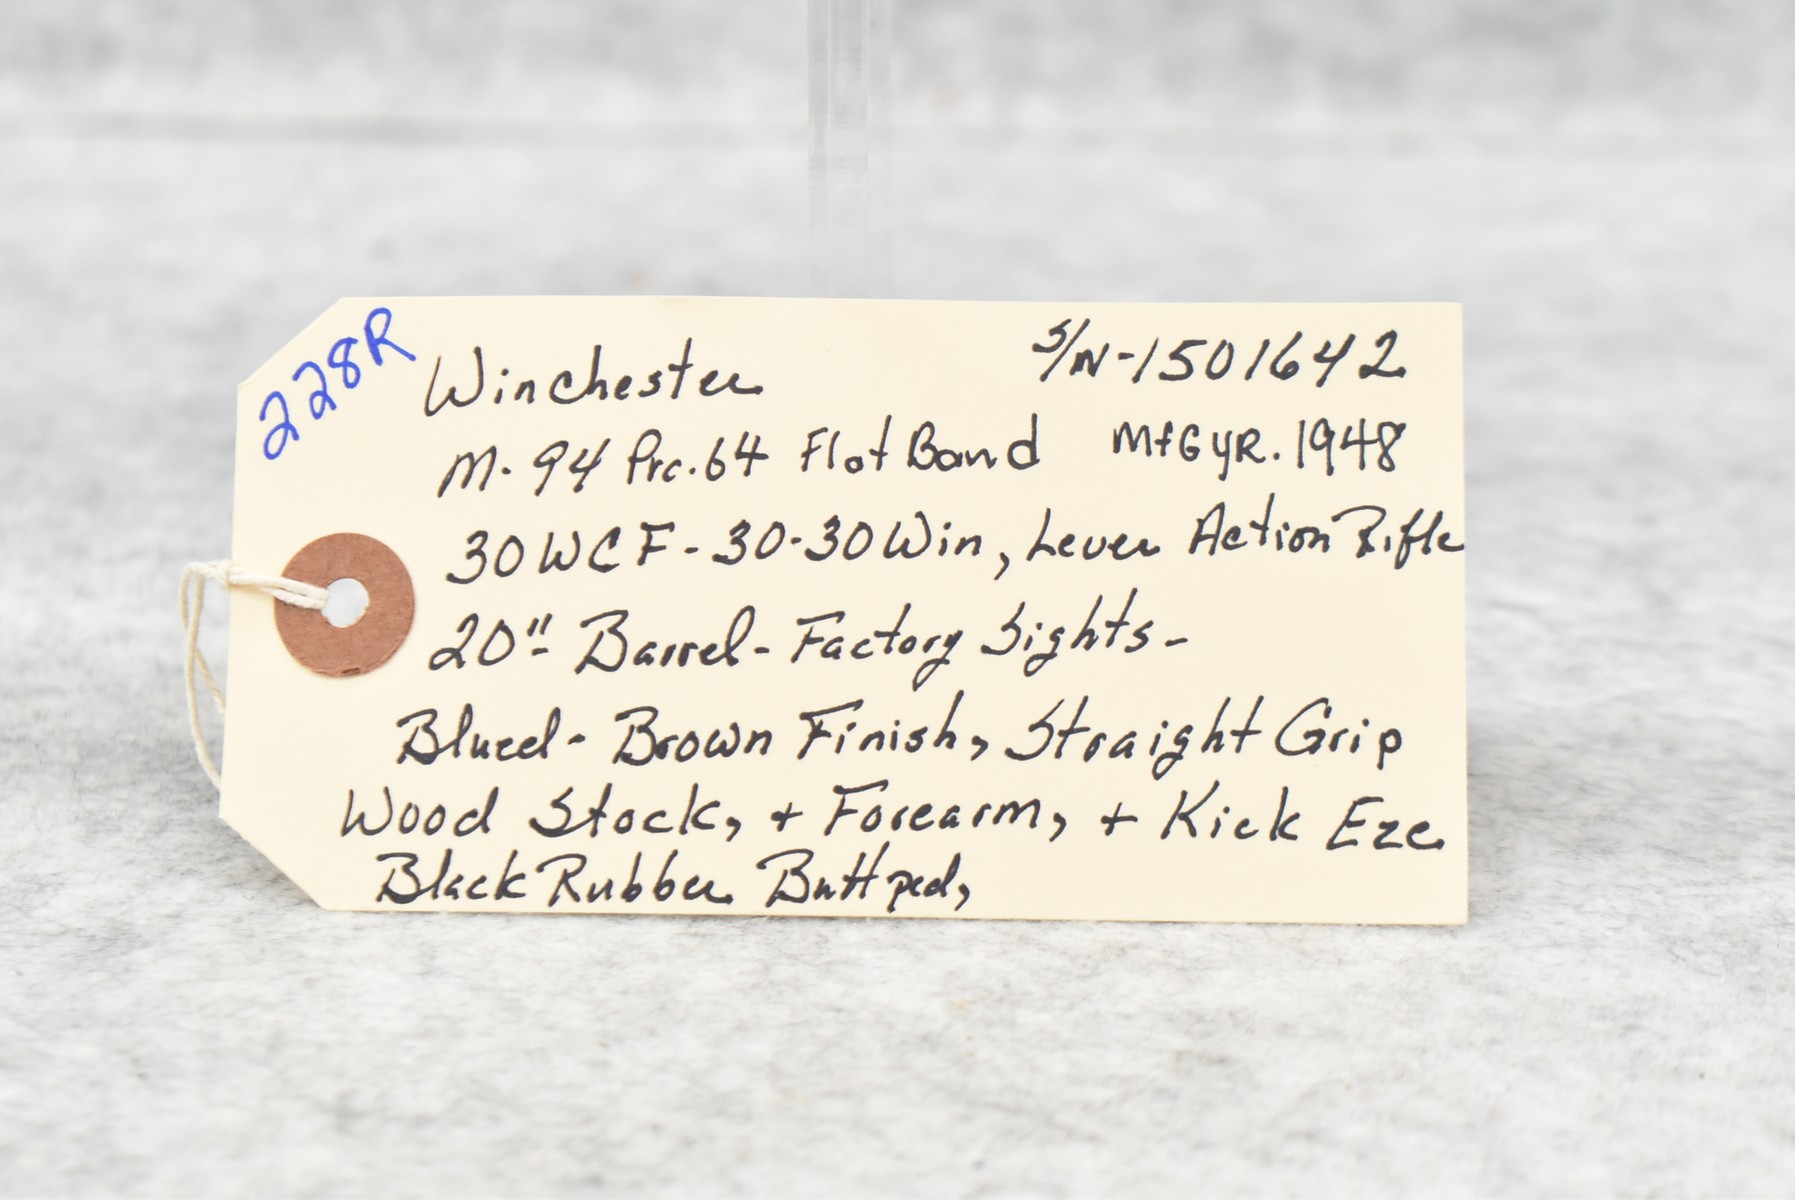 228R
Winchester S/N-1501642
M-94 Pre.64 Flat Band MfG YR. 1948
30WCF-30-30Win, Lever Action Rifle
20"- Barrel-Factory Sights-
Blued-Brown Finish, Straight Grip
Wood Stock, + Forearm, + Kick Eze
Black Rubber Buttped,